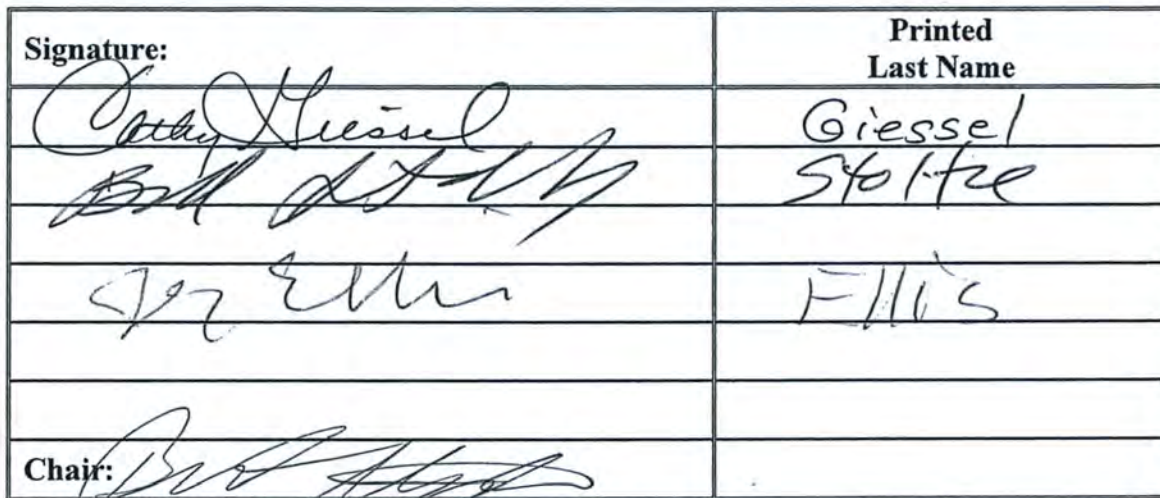 Signature: Printed
Last Name
Cathy Giessel Giessel
Bill Stoltze Stoltze
Ellis Ellis
Chair: